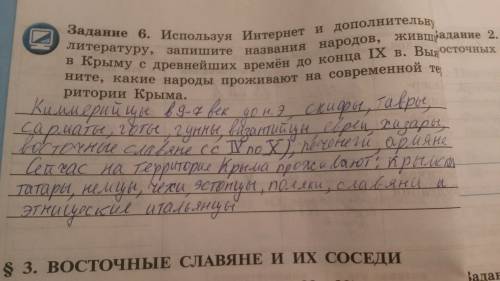 Задание 6. Используя Интернет и дополнительну
литературу, запишите названия народов, живш
в Крыму с древнейших времён до конца IX в. Вы
ните, какие народы проживают на современной те
ритории Крыма.
адание 2.
осточных
Киммерийцы в 9-7 век до н.э, скифы, тавры,
сарматы, готы, гунны, византийцы, евреи, хазары,
восточные славяне (с IV по X), печенеги, армяне
Сейчас на территории Крыма проживают: крымск
татары, немцы, чехи, эстонцы, поляки, славяни и
этнические итальянцы
§ 3. ВОСТОЧНЫЕ СЛАВЯНЕ И ИХ СОСЕДИ
Задан